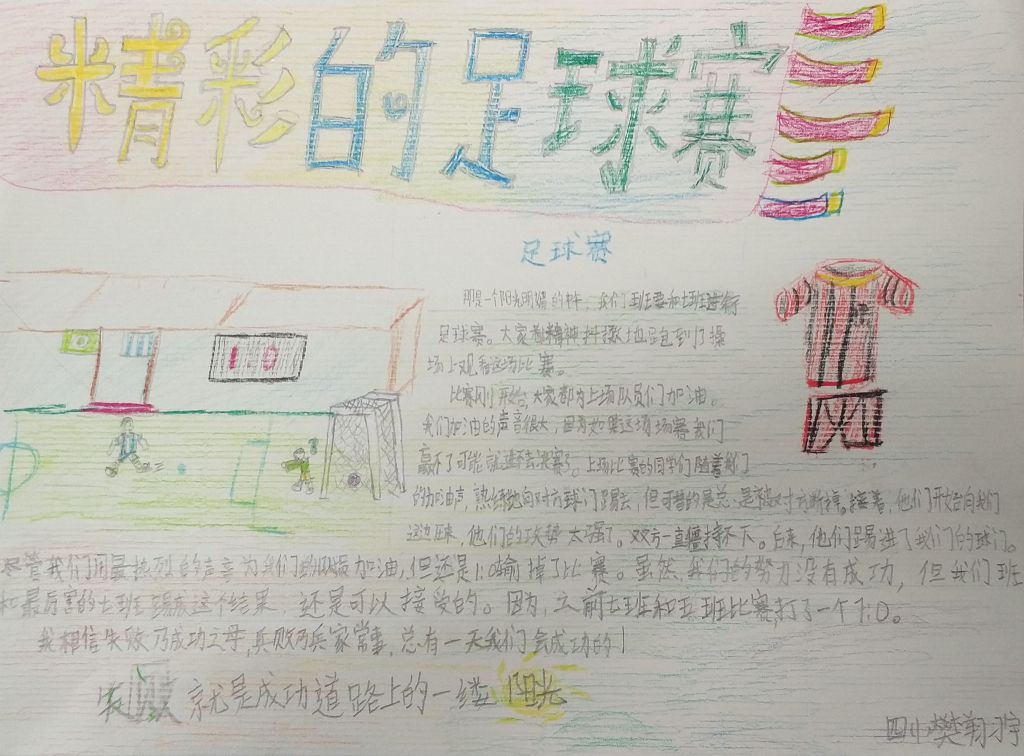 精彩的足球赛
足球赛
那是一个阳光明媚的
足球赛。大家都精神抖擞地跑到了操
场上观看这场比赛。
比赛刚开始,大家都为上场队员们加油。
我们加油的声音很大,因为如果这场赛我们
赢不了可能就进不去决赛了。上场比赛的同学们随着我们
的加油声,热烈地向对方球门踢去,但可惜的是总是被对方断掉。接着,他们开始向我们
这边压来,他们的攻势太强了。双方一直僵持不下。后来,他们踢进了我们的球门。
尽管我们用最热烈的声音为我们的队员加油,但还是1:0输掉了比赛。虽然,我们的努力没有成功,但我们班
和最厉害的七班踢成这个结果,还是可以接受的。因为,之前七班和五班比赛,打了一个7:0。
我相信失败乃成功之母,兵败乃兵家常事,总有一天我们会成功的!
失败就是成功道路上的一缕阳光
四小樊翔宇
1 0